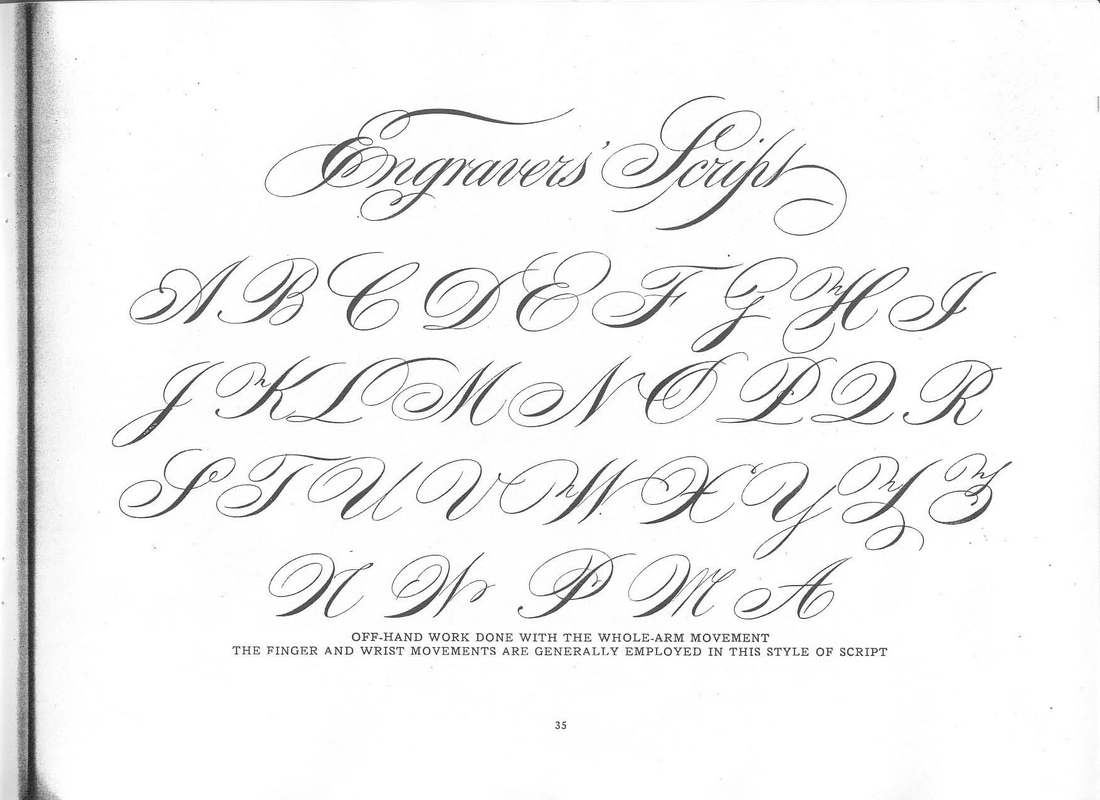 Engravers' Script
A B C D E F G H I
J K L M N O P Q R
S T U V W X Y Z Z
N W P M A
OFF-HAND WORK DONE WITH THE WHOLE-ARM MOVEMENT
THE FINGER AND WRIST MOVEMENTS ARE GENERALLY EMPLOYED IN THIS STYLE OF SCRIPT
35